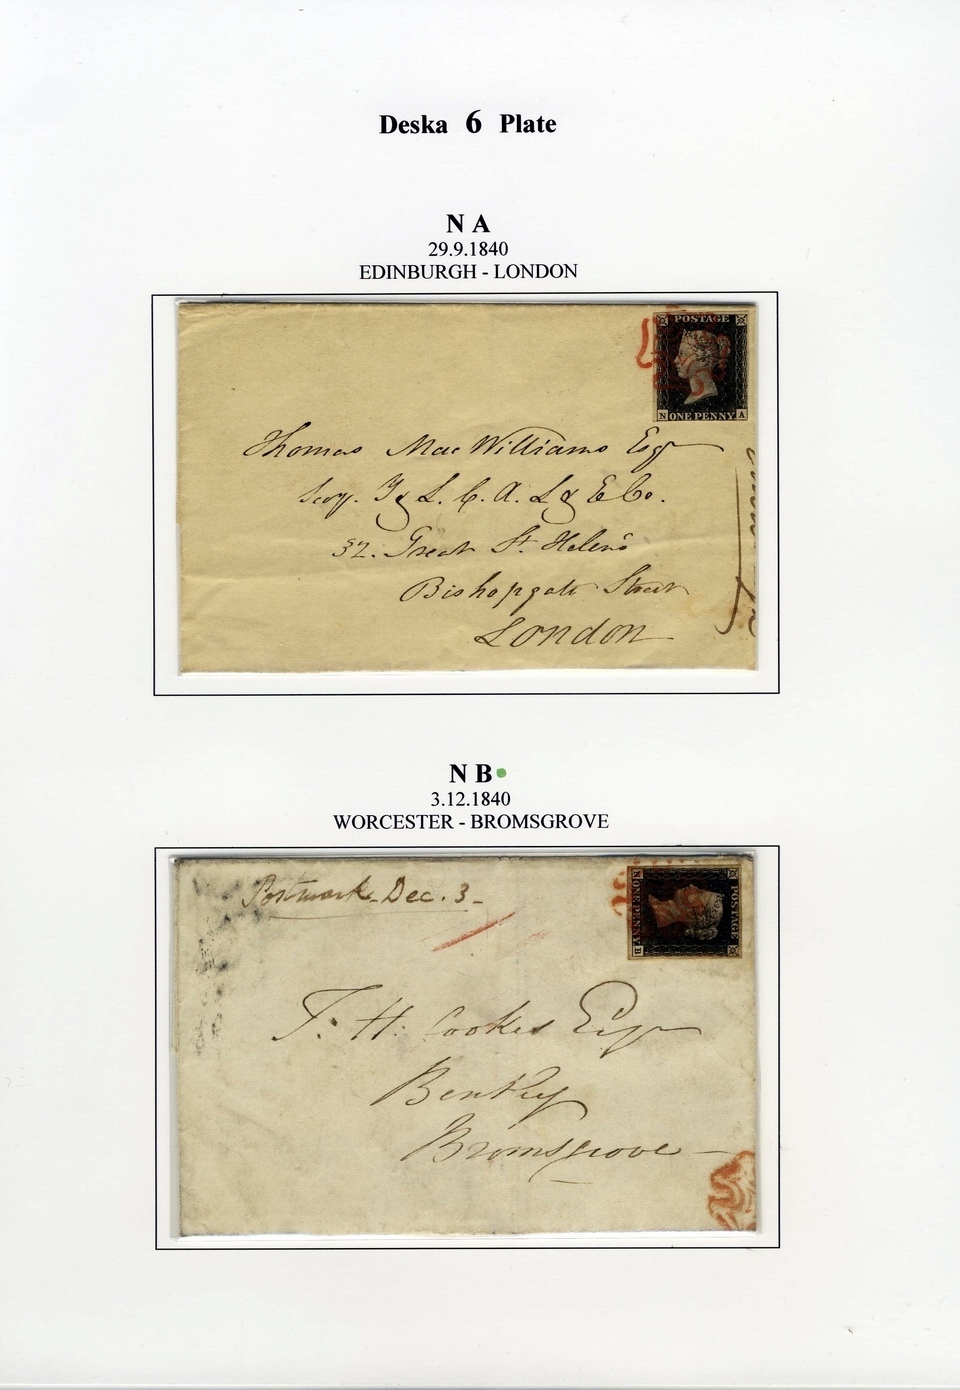 Deska 6 Plate
N A
29.9.1840
EDINBURGH - LONDON
POSTAGE
N ONE PENNY A
Thomas Mac Williams Esqr
Secy. & L. C. A. L & E Co.
32. Great St. Helens
Bishopgate Street
London
N B
3.12.1840
WORCESTER - BROMSGROVE
Postmark Dec. 3
POSTAGE
N ONE PENNY B
T. H. Cookes Esqr
Bentley
Bromsgrove